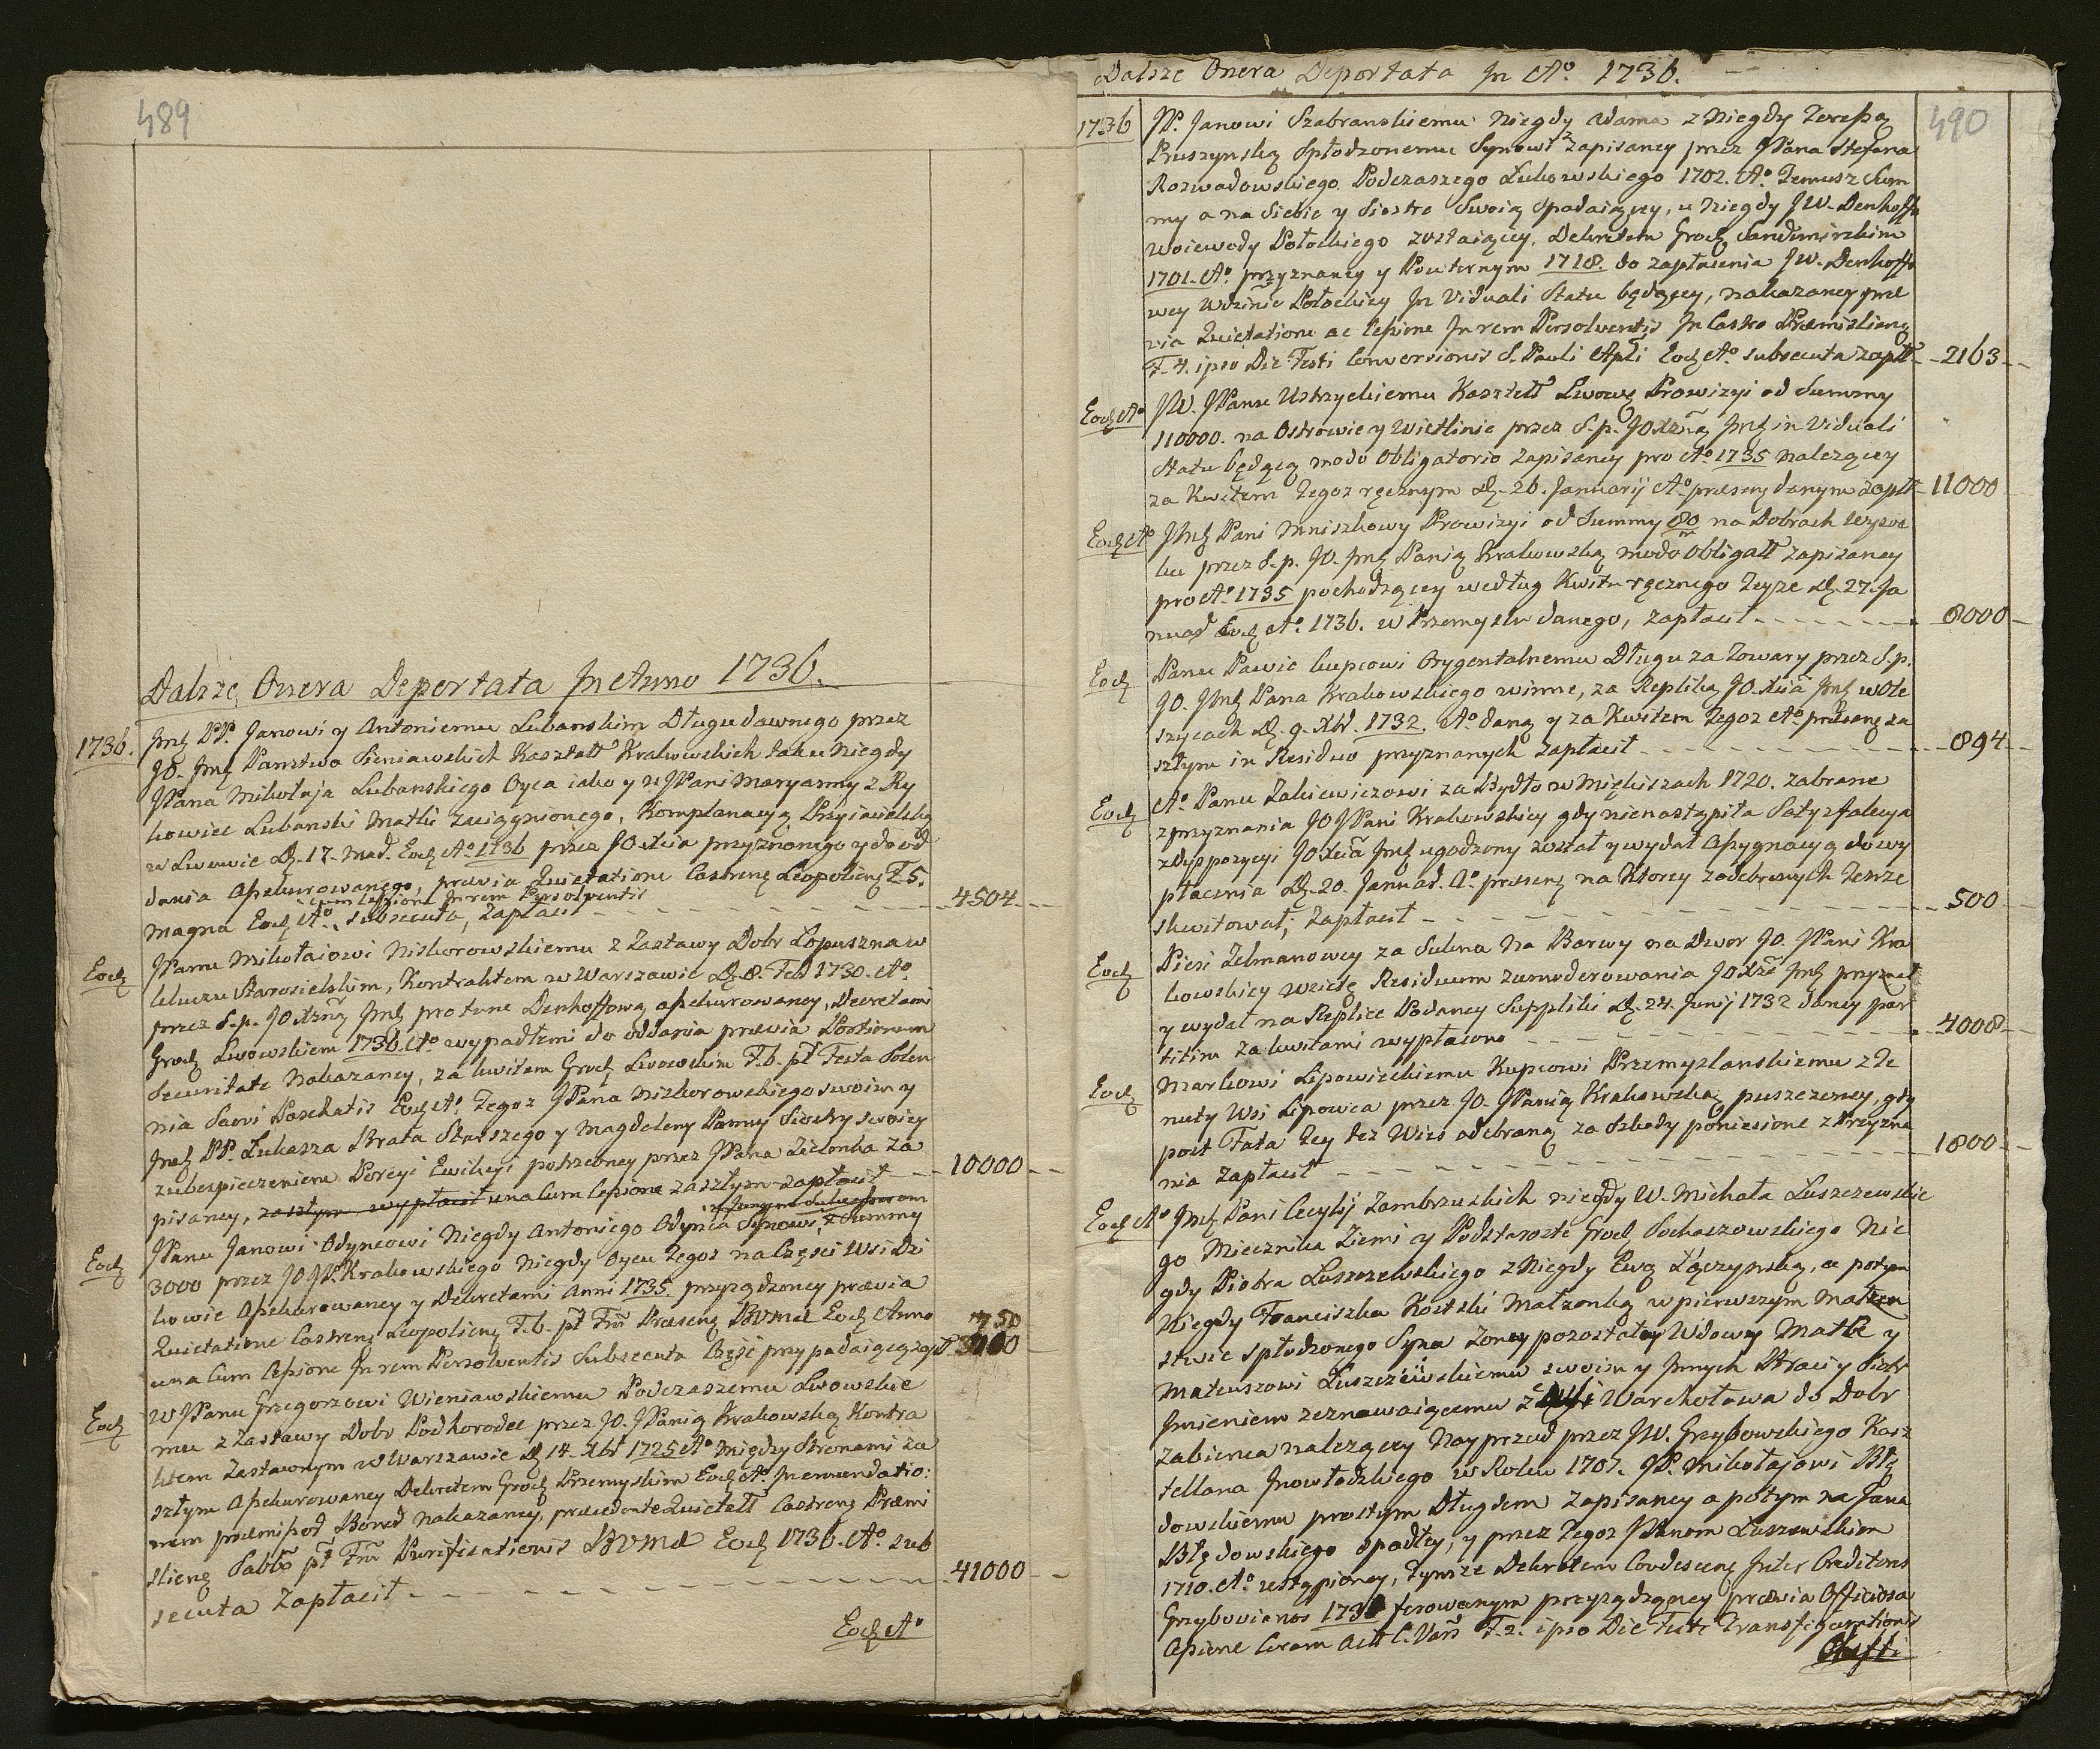 489
Dalsze Onera Deportata In Anno 1736.
1736. Jmę PP. Janowi y Antoniemu Lubanskim Długu dawnego przez
JO. Jmę Panstwo Sieniawskich Kasztell Krakowskich tak u Niegdy
JPana Mikołaja Lubanskiego Oyca iako y u JPani Maryanny z Ry
kowiec Lubanski Matki zaciągnionego, Komplanacyą Przyiacielską
w Lwowie D. 17. Eod A° 1736 przez JO Xcia przyznanego y do od
dania Assekurowanego, prævia Quietatione Castren Leopolien F. 5.
cum Cessione In rem Persolventis
magna Eod A° subsecuta, Zapłacił - - - 4504
Eod JPanu Mikołaiowi Niskorowskiemu z Zastawy Dobr Lopuszna w
kluczu Starosielskim, Kontraktem w Warszawie D. 8. Feb 1730. A°
przez S.p. JO Xżnę Jmę pro tunc Denhoffową assekurowaney, Decretami
Grod Lwowskiem 1736. A° wypadłemi do oddania prævia Portionum
Securitate Nakazaney, za kwitem Grod Lwowskim F. 6. pt Festa Solen
nia Sacri Paschatis Eod A° Tegoz JPana Niskorowskiego swoim y
Jmę PP. Łukasza Brata Starszego y Magdaleny Panny Siostry swoiey
zubespieczeniem Porcyi Ewikcyi potrzebney przez JPana Zielonka Za
pisaney, zaszłym wypłacił una Cum Cessione zaszłym zapłacił - - 10000
Eod JPanu Janowi Odyncowi Niegdy Antoniego Odynca Synowi, z Summy
3000 przez JO JP. Krakowskiego niegdy Oycu Tegoz na Części Wsi Dzi
kowie Assekurowaney y Dekretami Anni 1735 przysądzoney prævia
Quietatione Castren Leopolien F. 6. pt Fm Præsen BVMæ Eod Anno 750
una Cum Cessione In rem Persolventis Subsecuta Część przypadaiącą zapł
Eod WJPanu Grzegorzowi Wieniawskiemu Podczaszemu Lwowskie
mu z Zastawy Dobr Podhorodec przez JO. JPanią Krakowską Kontra
ktem Zastawnym w Warszawie D 14. Xbr 1725 A° Między Stronami za
szłym Assekurowaney Dekretem Grod Przemyskim Eod A° In emendatio:
nem præmissor Bonor nakazaney, præcedente Quietatt Castren Præmi
slien Sabbo pt Fm Purificationis BVMæ Eod 1736. A° sub
secuta Zapłacił - - - 41000
Eod A°
Dalsze Onera Deportata In A° 1736.
490
1736 JP. Janowi Szabranskiemu Niegdy Adama z Niegdy Teressą
Pruszynską Spłodzonemu Synowi zapisaney przez JPana Stefana
Rozwadowskiego Podczaszego Łukowskiego 1702. A° Temusz Sum
my a na Siebie y Siostrę Swoią Spadaiącey, u Niegdy JW. Denhoffa
Woiewody Połockiego zostaiącey, Dekretem Grod Sandomirskim
1701. A° przyznaney y Powtornym 1718. do zapłacenia JW. Denhoffo
wey Wdzinie Połockiey In Viduali Statu będącey, nakazaney præ
via Quietatione ac Cessione In rem Persolventis In Castro Præmislien
F. 4. ipso Die Festi Conversionis S. Pauli Apli Eod A° subsecuta zapł - 2163
Eod A° JW. JPanu Ustrzyckiemu Kasztell Lwows Prowizyi od Summy
110000. na Ostrowie y Wietlinie przez S.p. JO Xżnę Jmę in Viduali
Statu będącą modo Obligatorio zapisaney pro A° 1735 należącey
za Kwitem Tegoz ręcznym D. 26. Januarij A° præsen danym zapł - 11000
Eod A° Jmę Pani Mniszkowy Prowizyi od Summy 80 na Dobrach Wysoc
ku przez S.p. JO. Jmę Panią Krakowską modo Obligatt zapisaney
pro A° 1735 pochodzącey według Kwitu ręcznego Teyze D. 27. Ja
nuar Eod A° 1736. w Przemyslu danego, zapłacił - - - 8000
Eod Panu Pawie kupcowi Orygentalnemu Długu za Towary przez S.p.
JO. Jmę Pana Krakowskiego winne, za Repliką JO. Xcia Jmę w Ole
szycach D. 9. Xbr. 1732. A° daną y za Kwitem Tegoz A° præsen za
szłym in Residuo przyznanych zapłacił - - - 894
Eod A° Panu Zakiewiczowi za Bydło w Mięckiszach 1720. zabrane
z przyznania JO JPani Krakowskiey gdy nienastąpiła Satysfakcya
z dyspozycyi JO Xcia Jmę ugodzony został y wydał Assygnacyą do wy
płacenia D. 20. Januar. A° præsen na Ktorey zodebranych Tenze
skwitował; Zapłacił - - - 500
Eod Piesi Zelmanowey za Sukna Na Barwy na Dwor JO. JPani Kra
kowskiey wzięte Residuum zumoderowania JO Xże Jmę przyznał
y wydał na Replice Podaney Suppliki D. 24. Junij 1732 daney par
titim za kwitami wypłacono - - - 4008
Eod Markowi Lipowieckiemu Kupcowi Przemyslanskiemu z Te
nuty Wsi Lipowca przez JO. JPanią Krakowską puszczoney, gdy
post Fata Jey tez Wies odebraną za Szkody poniesione z Przyzna
nia Zapłacił - - - 1800
Eod A° Jmę Pani Cecylij Zambrzuskich niegdy W. Michała Łuszczewskie
go Miecznika Ziemi y Podstaroste Grod Sochaczowskiego Nie
gdy Piotra Łuszczewskiego z Niegdy Ewą Łączynską, a potym
Niegdy Franciszka Kostski Małzonką w pierwszym Małżen
stwie spłodzonego Syna Zoney pozostałey Wdowy Matce y
Mateuszowi Łuszczewskiemu swoim y Jnnych Braci y Siostr
Jmieniem zeznawaiącemu z Warchołowa do Dobr
Zabienca należącey Nayprzed przez JW. Grzybowskiego Kasz
tellana Jnowłodzkiego w Roku 1707. JP. Mikołajowi Błę
dowskiemu prostym Długiem Zapisaney a potym na Jana
Błędowskiego spadłey, y przez Tegoz JPanom Łuszczewskim
1710. A° ustąpioney, Tymze Dekretem Condescen Inter Creditores
Grzybovianos ferowanym przysądzoney prævia Officiosa
Cessione Coram Actt C. Vars F. 2. ipso Die Festi Transfigurationis